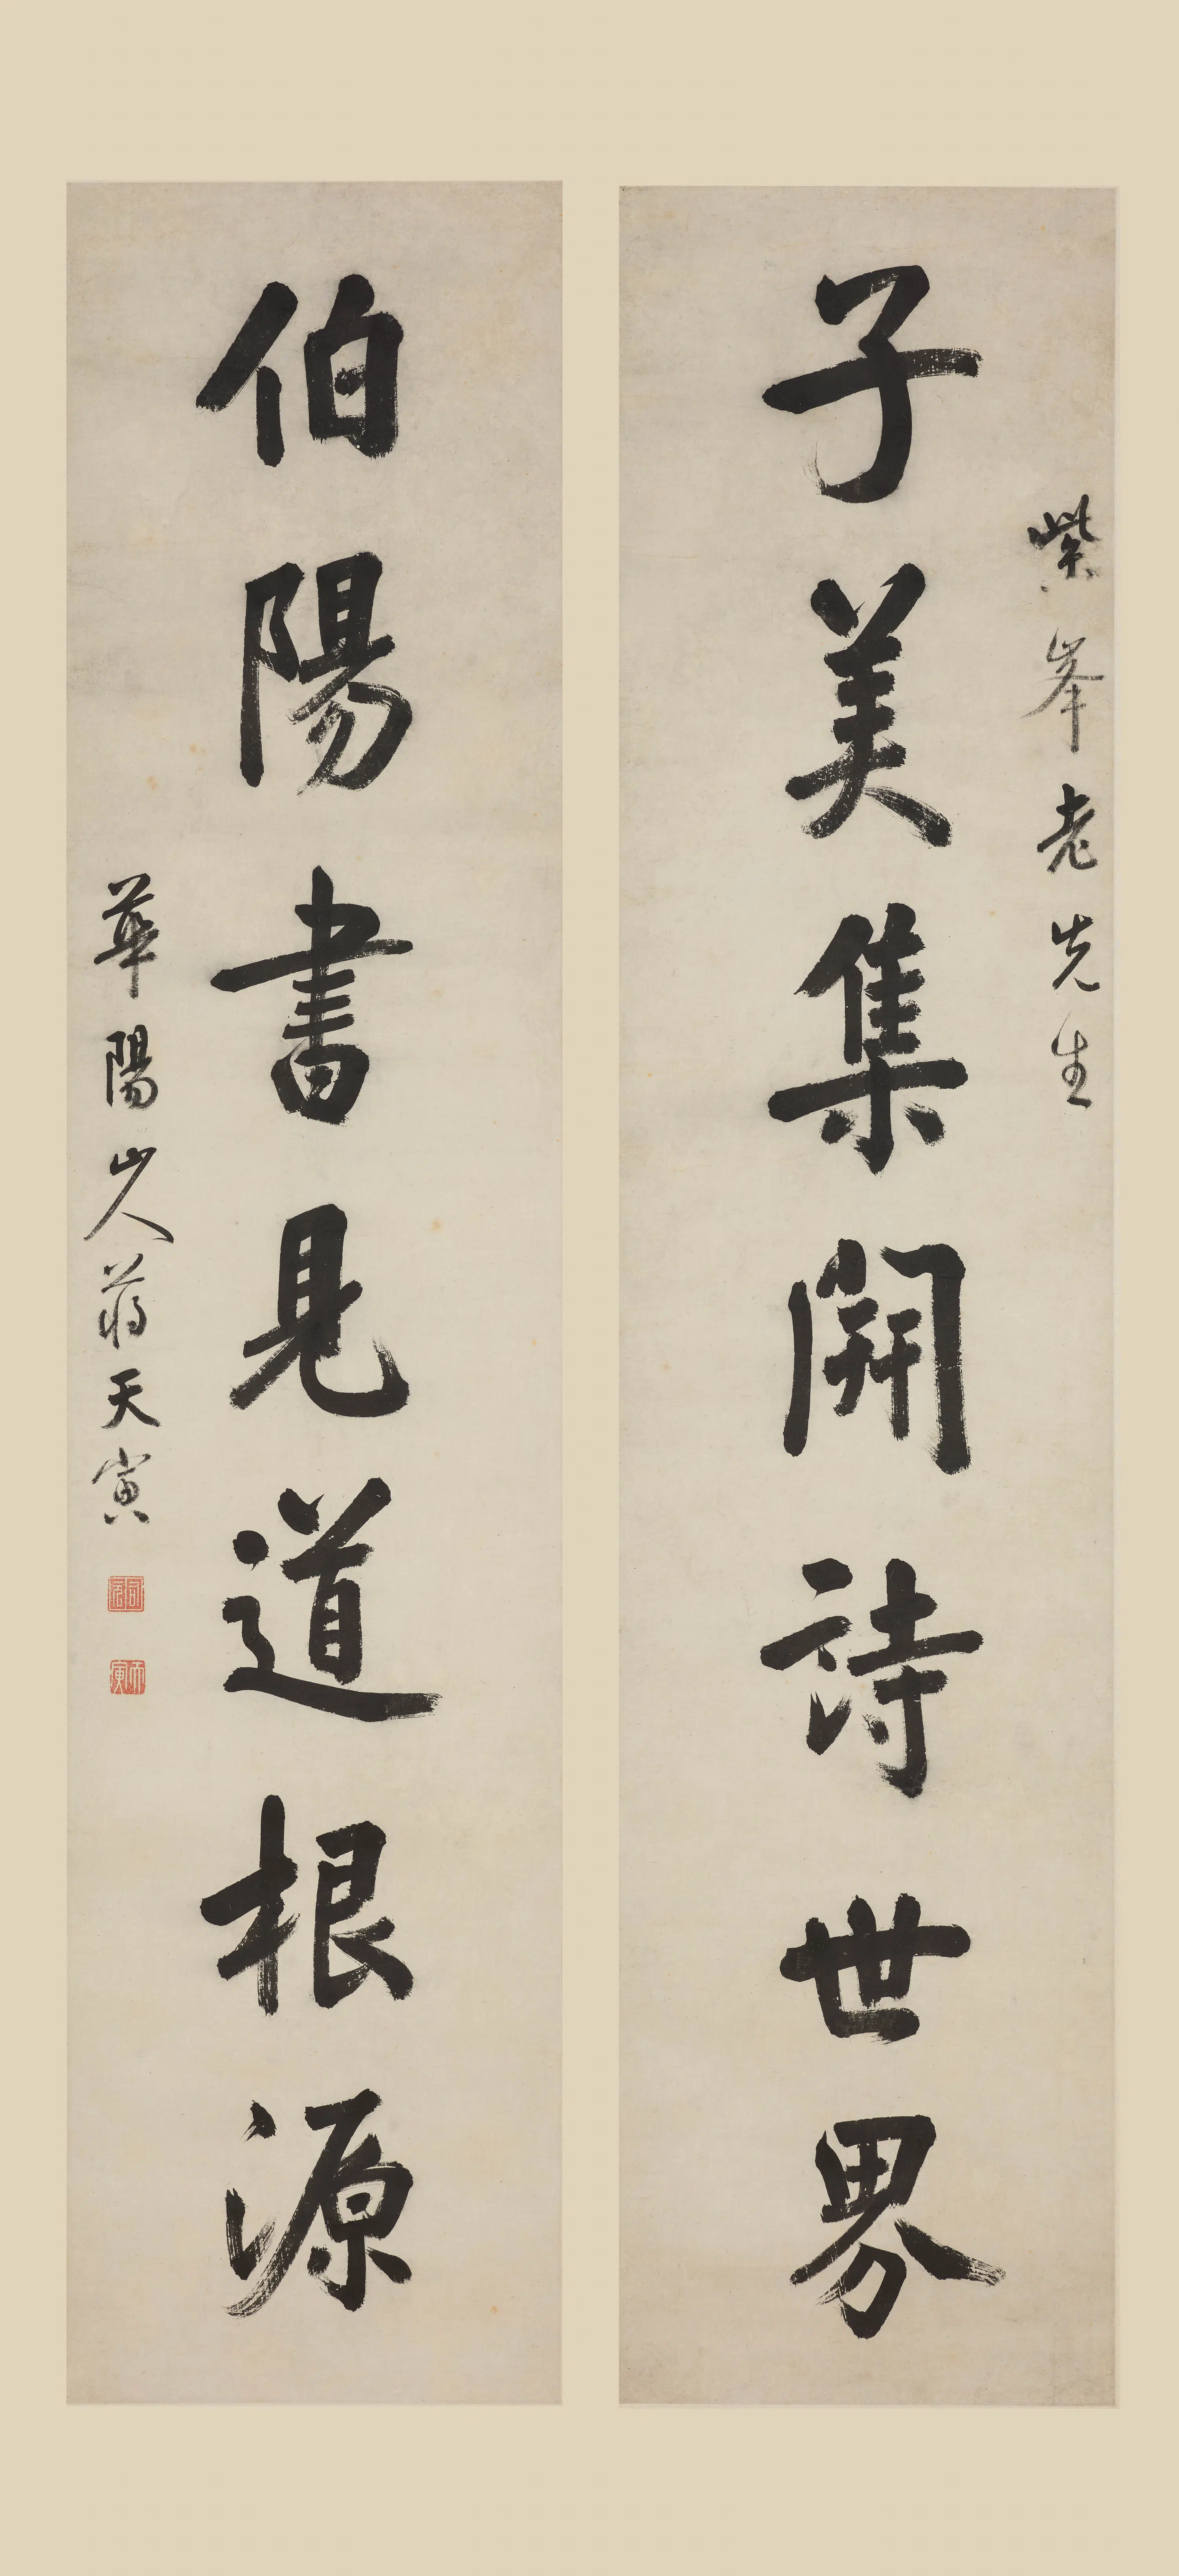 紫峯老先生
子美集開詩世界
伯陽書見道根源
華陽山人蔣天寅
天寅